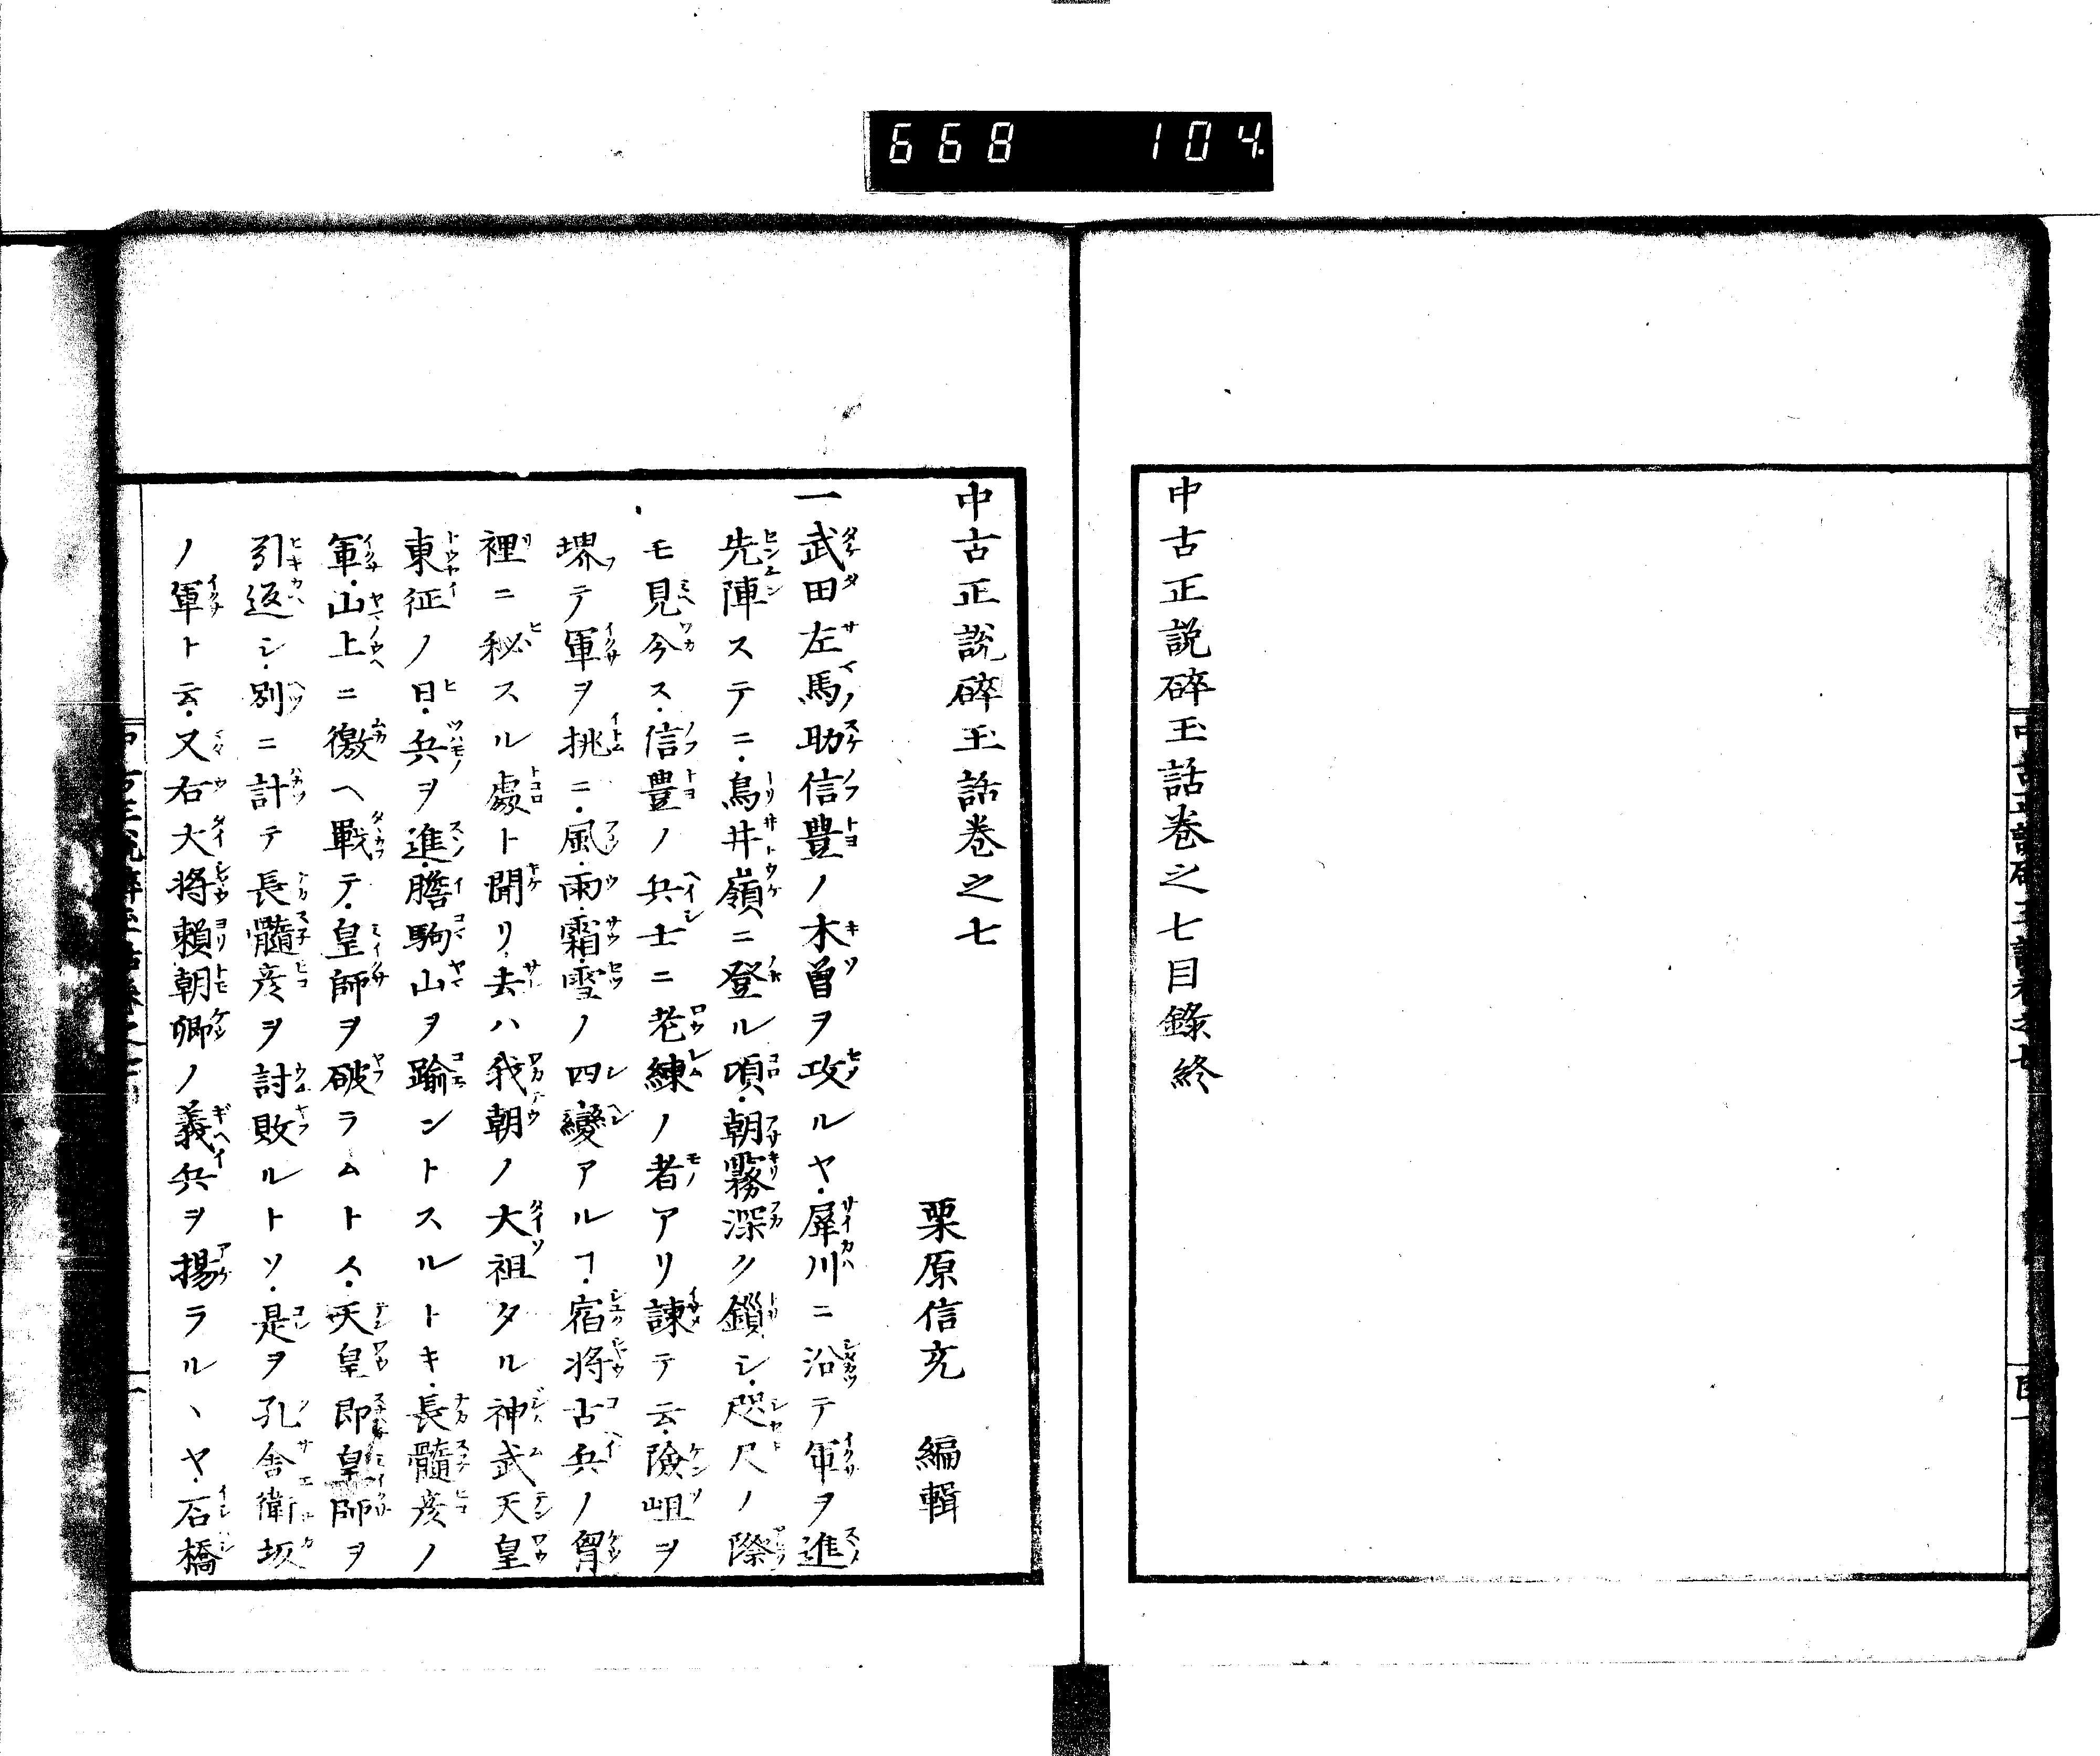 668 104
中古正説碎玉話巻之七目錄終
中古正説碎玉話巻之七
栗原信充 編輯
一武田左馬助信豊ノ木曽ヲ攻ルヤ・犀川ニ沿テ軍ヲ進
先陣ステニ・鳥井嶺ニ登ル項・朝霧深ク鎖シ・咫尺ノ際
モ見今ス・信豊ノ兵士ニ老練ノ者アリ諫テ云・險岨ヲ
堺テ軍ヲ挑ニ・風・雨・霜・雪ノ四變アルヿ・宿将古兵ノ胷
裡ニ秘スル處ト聞リ・去ハ我朝ノ大祖タル神武天皇
東征ノ日・兵ヲ進・膽駒山ヲ踰ントスルトキ・長髓彦ノ
軍・山上ニ徼ヘ戰テ・皇師ヲ破ラムトス・天皇即皇師ヲ
引返シ・別ニ計テ長髓彦ヲ討敗ルトソ・是ヲ孔舎衛坂
ノ軍ト云・又右大将頼朝卿ノ義兵ヲ揚ラルヽヤ・石橋